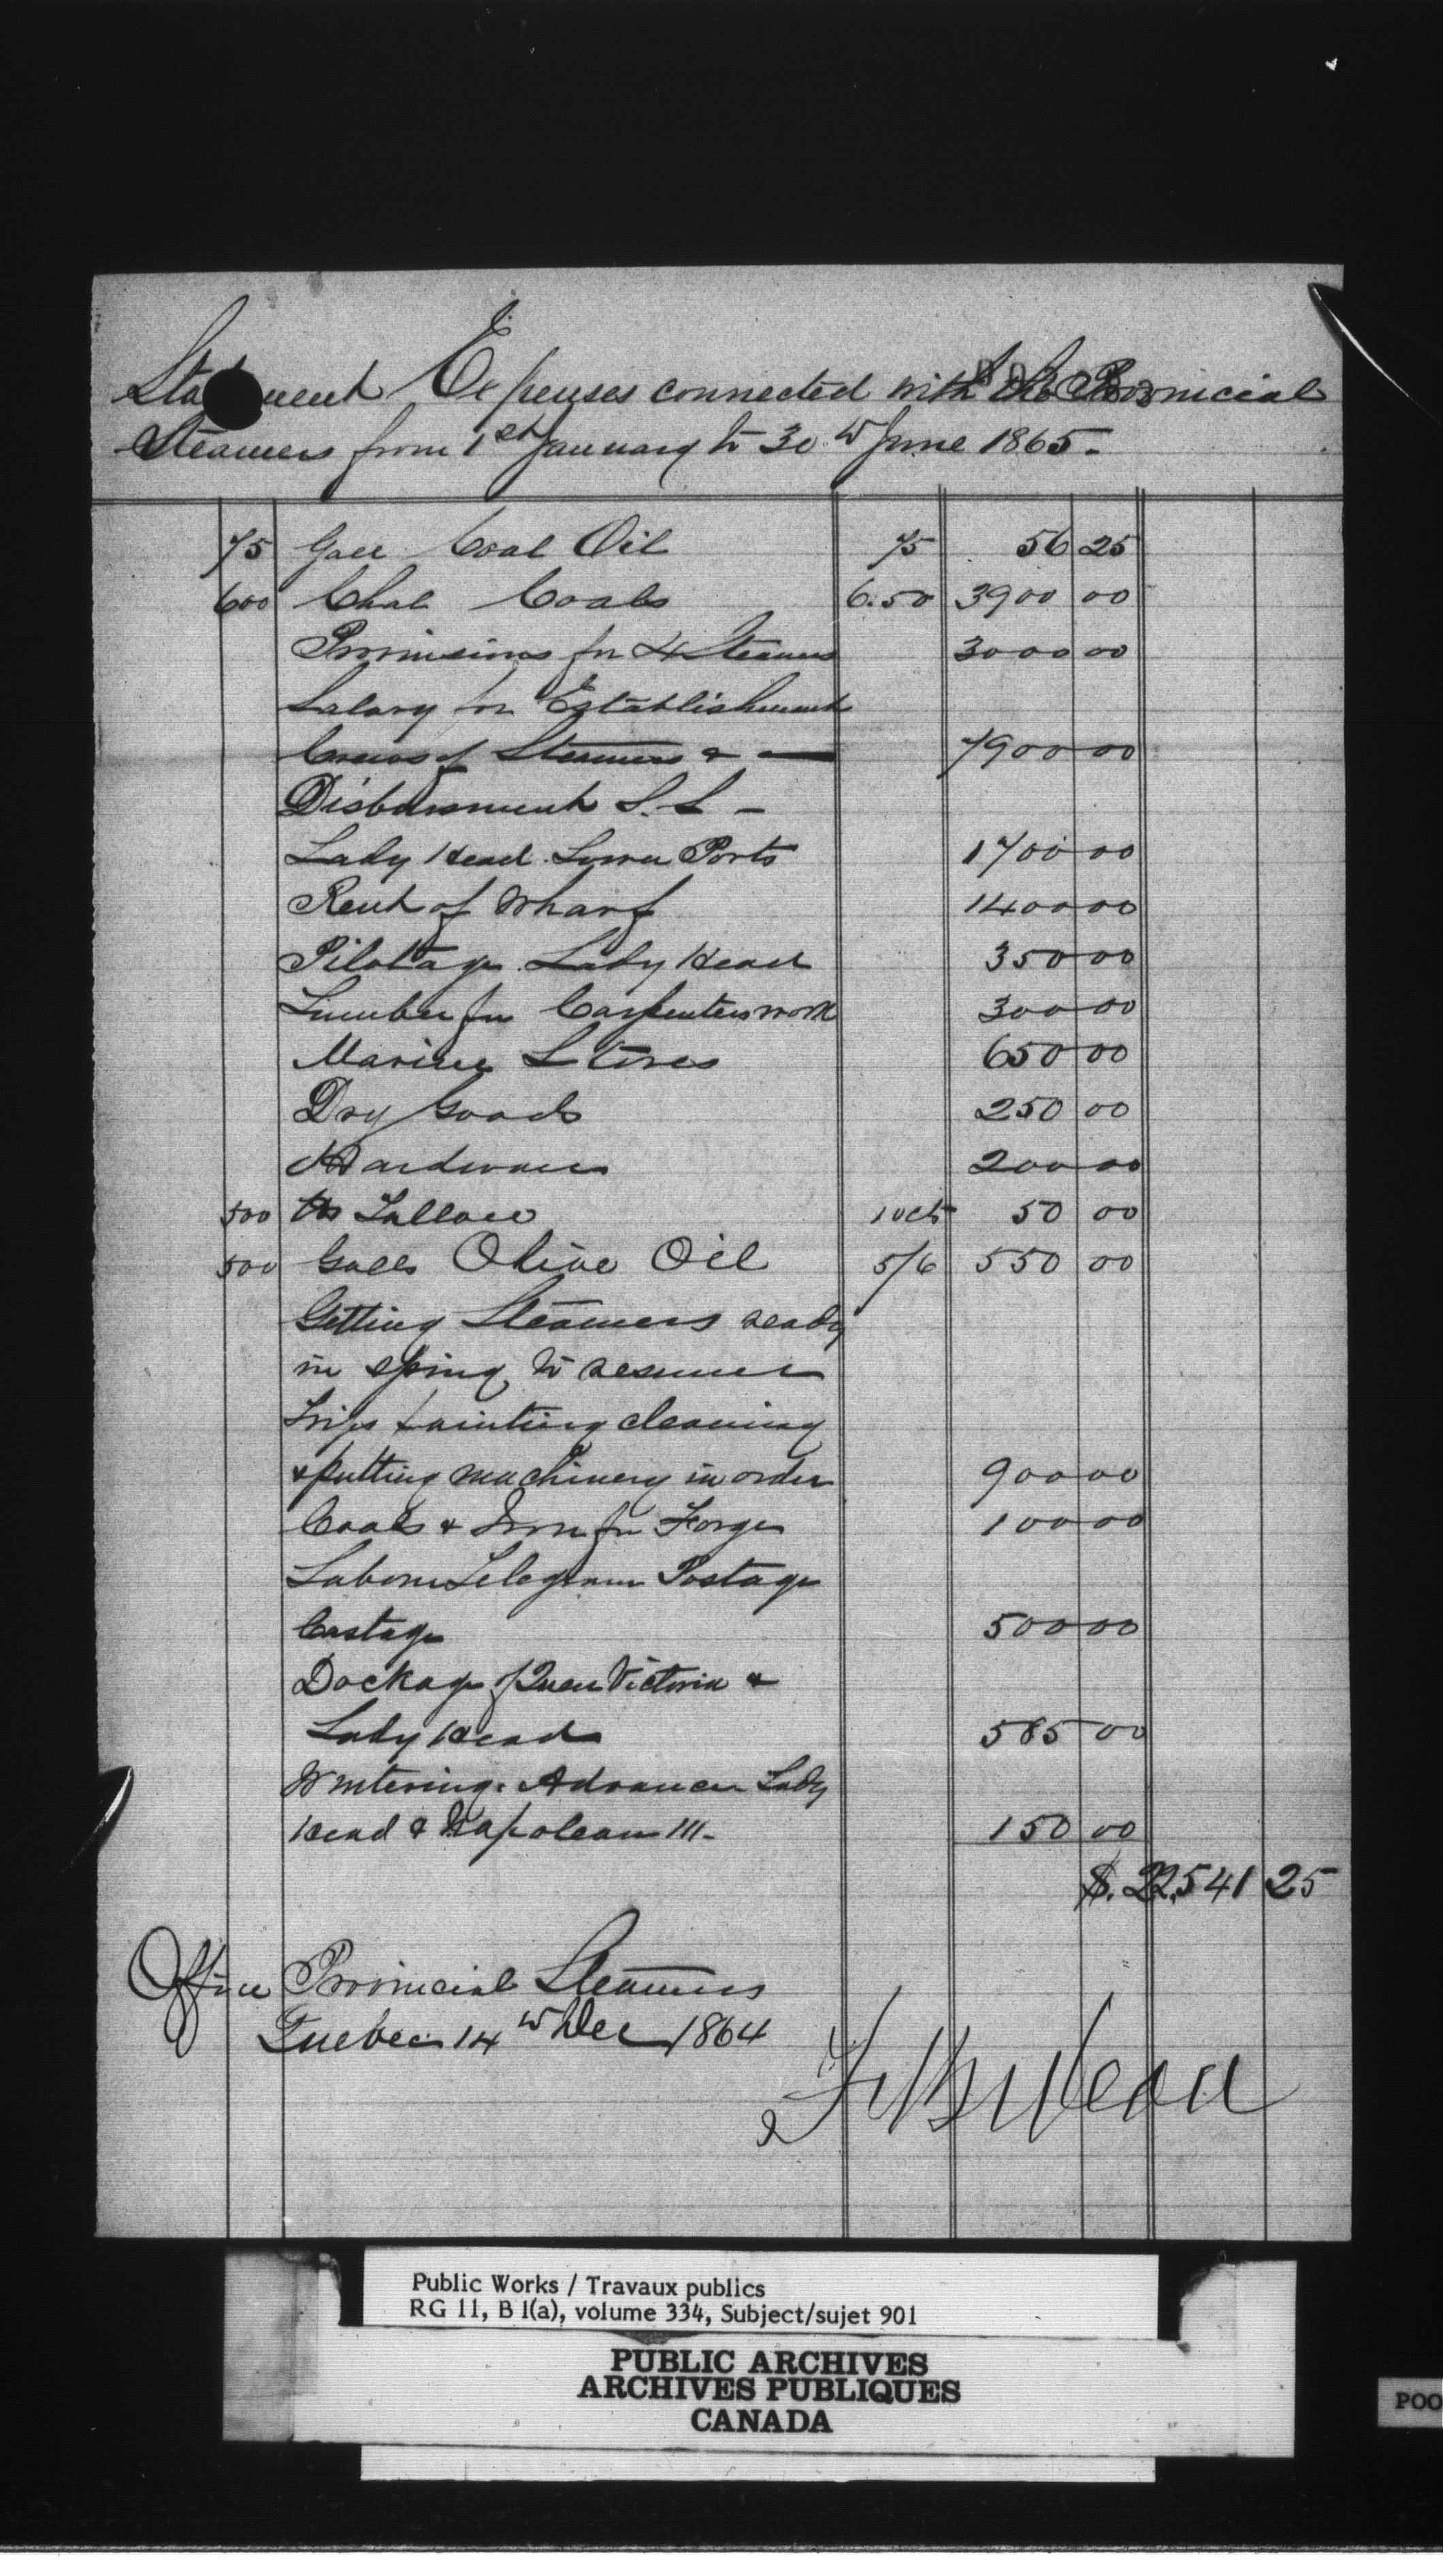 Statement Expenses connected with the Provincial
Steamers from 1st January to 30th June 1865-
75 Gall Coal Oil 75 56 25
600 Chal Coals 6.50 3900 00
Provisions for 4 Steamers 3000 00
Salary for Establishment
Crews of Steamers & — 7900 00
Disbursment S.S -
Lady Head Lower Ports 1700 00
Rent of Wharf 1400 00
Pilotage Lady Head 350 00
Lumber for Carpenters work 300 00
Marine Stores 650 00
Dry Goods 250 00
Hardware 200 00
500 lbs Tallow 10cts 50 00
500 Galls Olive Oil 5/6 550 00
Getting Steamers ready
in spring to resume
trips painting cleaning
& putting machinery in order 900 00
Coals & Iron for Forge 100 00
Labour Telegram Postage
Cartage 500 00
Dockage of Queen Victoria &
Lady Head 585 00
Wintering Advance Lady
Head & Napoleon III- 150 00
$. 22,541 25
Office Provincial Steamers
Quebec 14th Dec 1864
Public Works / Travaux publics
RG 11, B 1(a), volume 334, Subject/sujet 901
PUBLIC ARCHIVES
ARCHIVES PUBLIQUES
CANADA
POO